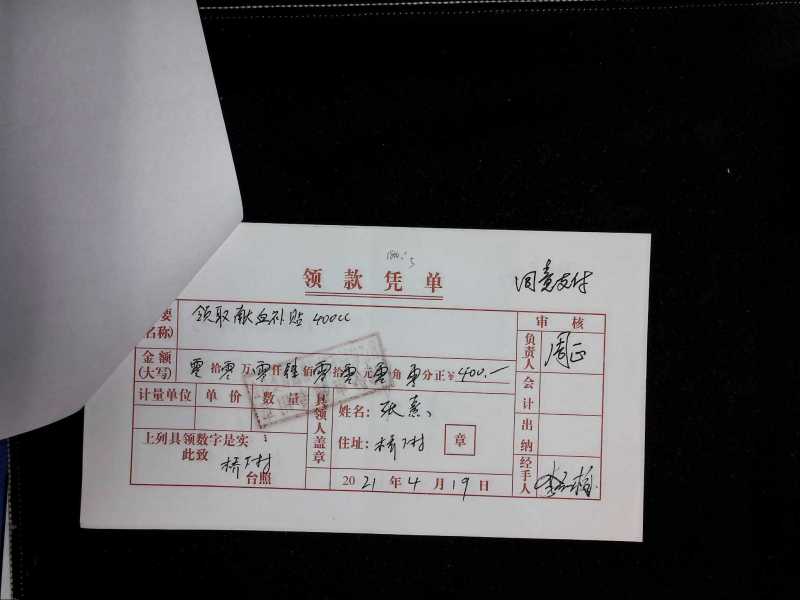 领款凭单
同意支付
要 领取献血补贴 400cc
名称)
审核
负责人 周正
金额(大写) 零拾零万零仟肆佰零拾零元零角零分正¥400.—
会计
计量单位 单价 数量
具领人盖章
姓名:张熹
住址:桥下村 章
出纳
上列具领数字是实;
此致
桥下村 台照
2021年4月19日
经手人